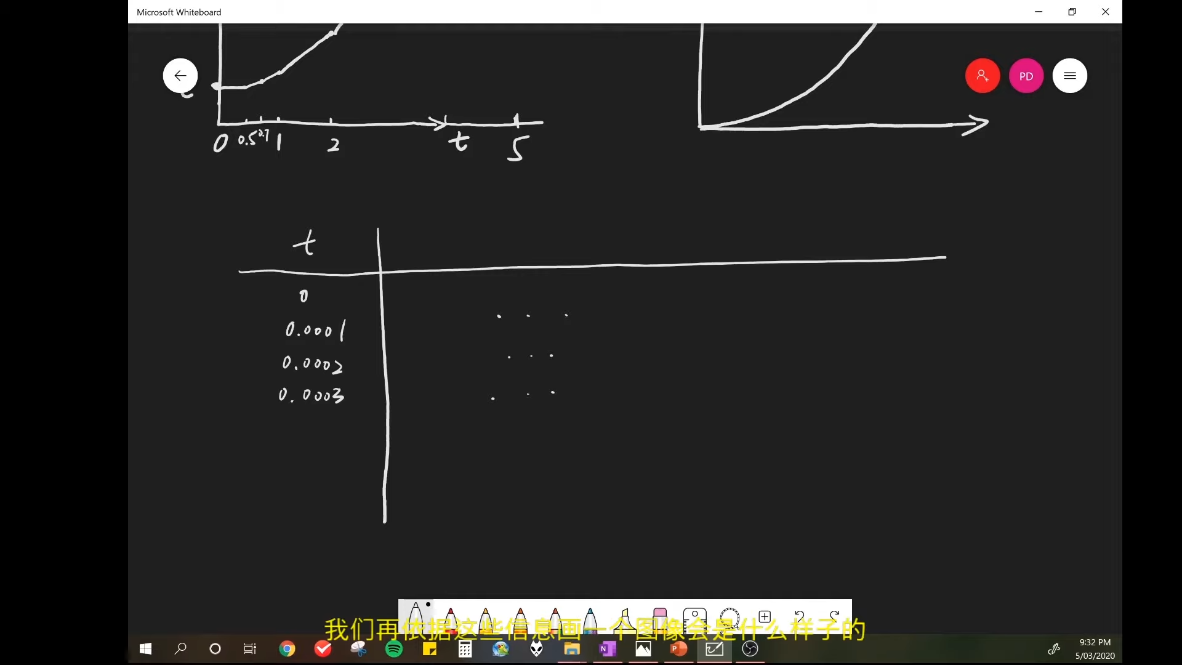 Microsoft Whiteboard
PD
0 0.5 0.7 1 2 t 5
t
0
0.0001
0.0002
0.0003
我们再依据这些信息画一个图像会是什么样子的
9:32 PM
5/03/2020